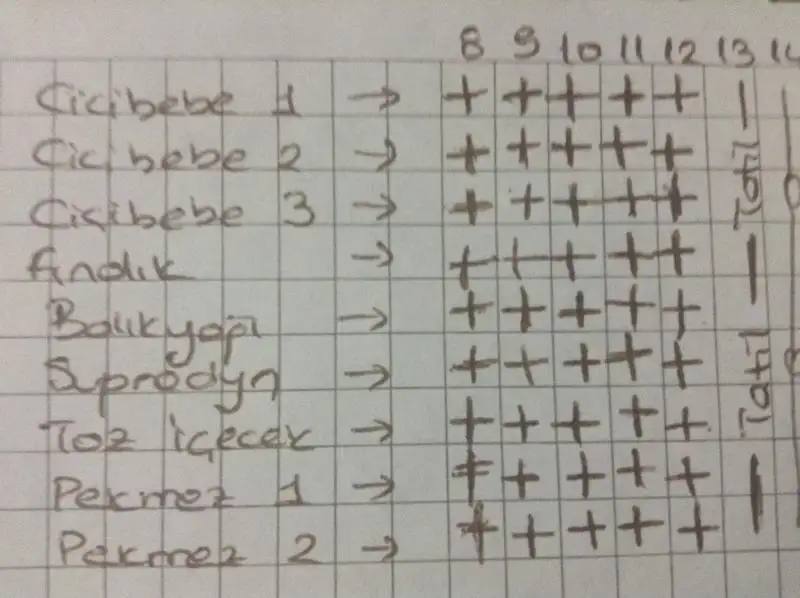 8 9 10 11 12 13 14
Cicibebe 1 → + + + + +
Cicibebe 2 → + + + + +
Cicibebe 3 → + + + + +
Fındık → + + + + +
Balıkyağı → + + + + +
Suprodyn → + + + + +
Toz içecek → + + + + +
Pekmez 1 → + + + + +
Pekmez 2 → + + + + +
— Tatil — Tatil —